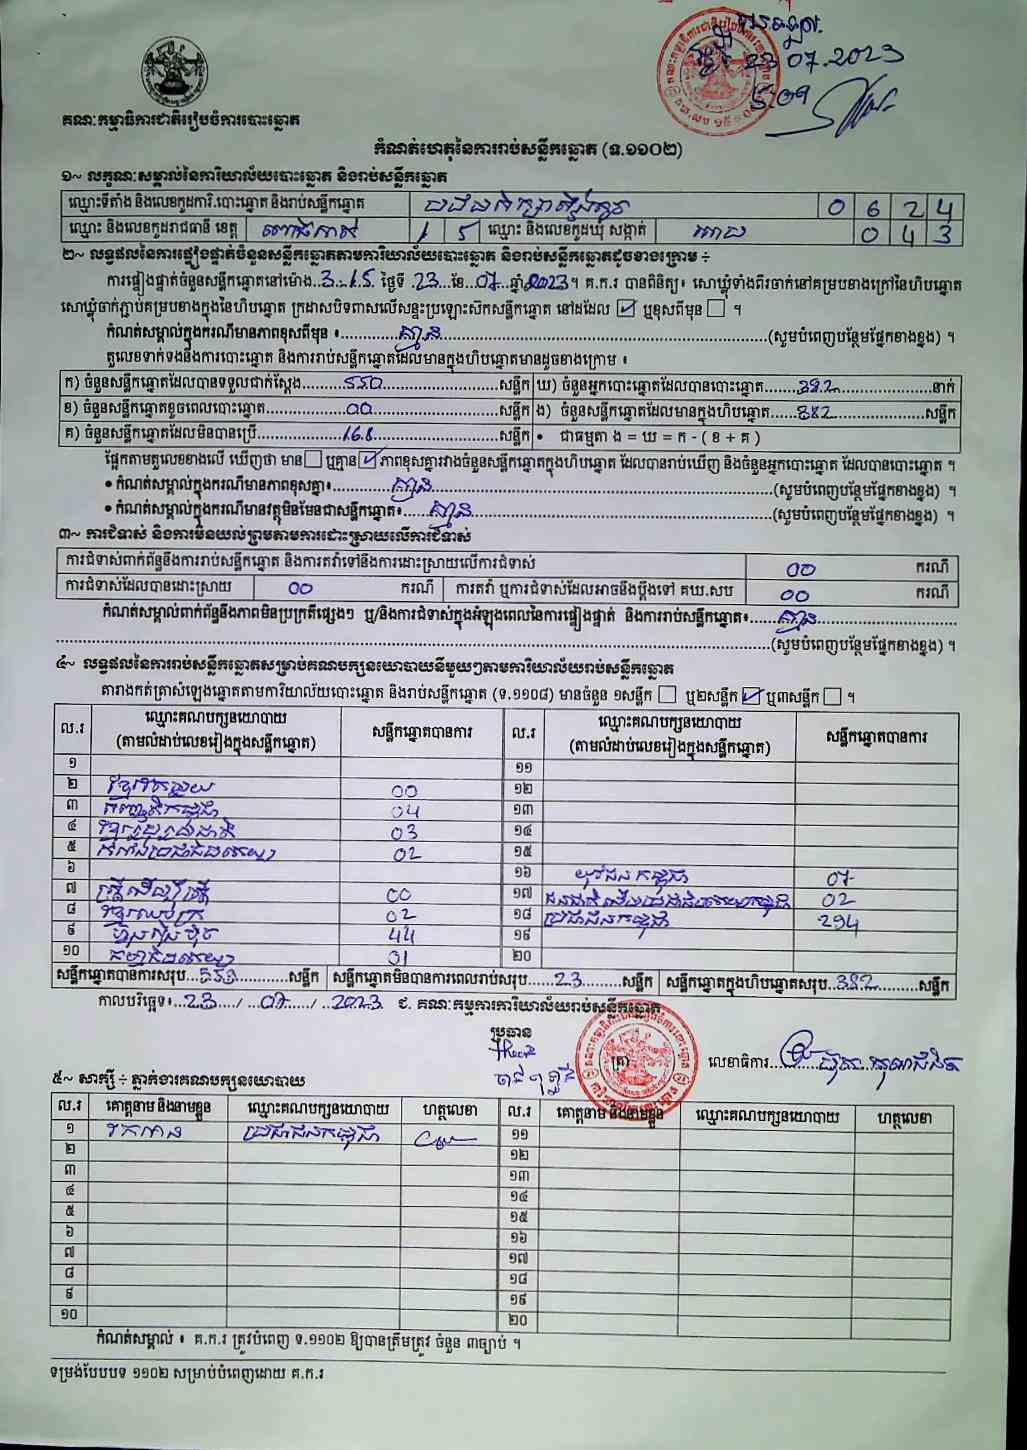 23 07.2023
គណៈកម្មាធិការជាតិរៀបចំការបោះឆ្នោត
កំណត់ហេតុនៃការរាប់សន្លឹកឆ្នោត (ទ.១១០២)
១~ លក្ខណៈសម្គាល់នៃការិយាល័យបោះឆ្នោត និងរាប់សន្លឹកឆ្នោត
ឈ្មោះទីតាំង និងលេខកូដការិ.បោះឆ្នោត និងរាប់សន្លឹកឆ្នោត 0 6 2 4
ឈ្មោះ និងលេខកូដរាជធានី ខេត្ត ពោធិ៍សាត់ 1 5 ឈ្មោះ និងលេខកូដឃុំ សង្កាត់ 0 4 3
២~ លទ្ធផលនៃការផ្ទៀងផ្ទាត់ចំនួនសន្លឹកឆ្នោតតាមការិយាល័យបោះឆ្នោត និងរាប់សន្លឹកឆ្នោតដូចខាងក្រោម ÷
ការផ្ទៀងផ្ទាត់ចំនួនសន្លឹកឆ្នោតនៅម៉ោង..3..15. ថ្ងៃទី .23...ខែ..07...ឆ្នាំ.2023។ គ.ក.រ បានពិនិត្យ៖ សោឃ្លុំទាំងពីរចាក់នៅគម្របខាងក្រៅនៃហិបឆ្នោត
សោឃ្លុំចាក់ភ្ជាប់គម្របខាងក្នុងនៃហិបឆ្នោត ក្រដាសបិទពាសលើសន្ទះប្រឡោះស៊កសន្លឹកឆ្នោត នៅដដែល ☑ ឬខុសពីមុន ☐ ។
កំណត់សម្គាល់ក្នុងករណីមានភាពខុសពីមុន ៖ គ្មាន (សូមបំពេញបន្ថែមផ្នែកខាងខ្នង) ។
តួលេខទាក់ទងនឹងការបោះឆ្នោត និងការរាប់សន្លឹកឆ្នោតដែលមានក្នុងហិបឆ្នោតមានដូចខាងក្រោម ៖
ក) ចំនួនសន្លឹកឆ្នោតដែលបានទទួលជាក់ស្តែង 550 សន្លឹក ឃ) ចំនួនអ្នកបោះឆ្នោតដែលបានបោះឆ្នោត 382 នាក់
ខ) ចំនួនសន្លឹកឆ្នោតខូចពេលបោះឆ្នោត 00 សន្លឹក ង) ចំនួនសន្លឹកឆ្នោតដែលមានក្នុងហិបឆ្នោត 382 សន្លឹក
គ) ចំនួនសន្លឹកឆ្នោតដែលមិនបានប្រើ 168 សន្លឹក • ជាធម្មតា ង = ឃ = ក - ( ខ + គ )
ផ្អែកតាមតួលេខខាងលើ ឃើញថា មាន ☐ ឬគ្មាន ☑ ភាពខុសគ្នារវាងចំនួនសន្លឹកឆ្នោតក្នុងហិបឆ្នោត ដែលបានរាប់ឃើញ និងចំនួនអ្នកបោះឆ្នោត ដែលបានបោះឆ្នោត ។
• កំណត់សម្គាល់ក្នុងករណីមានភាពខុសគ្នា៖ គ្មាន (សូមបំពេញបន្ថែមផ្នែកខាងខ្នង) ។
• កំណត់សម្គាល់ក្នុងករណីមានវត្ថុមិនមែនជាសន្លឹកឆ្នោត៖ គ្មាន (សូមបំពេញបន្ថែមផ្នែកខាងខ្នង) ។
៣~ ការជំទាស់ និងការមិនយល់ព្រមតាមការដោះស្រាយលើការជំទាស់
ការជំទាស់ពាក់ព័ន្ធនឹងការរាប់សន្លឹកឆ្នោត និងការតវ៉ាទៅនឹងការដោះស្រាយលើការជំទាស់ 00 ករណី
ការជំទាស់ដែលបានដោះស្រាយ 00 ករណី ការតវ៉ា ឬការជំទាស់ដែលអាចនឹងប្តឹងទៅ គឃ.សប 00 ករណី
កំណត់សម្គាល់ពាក់ព័ន្ធនឹងភាពមិនប្រក្រតីផ្សេងៗ ឬ/និងការជំទាស់ក្នុងអំឡុងពេលនៃការផ្ទៀងផ្ទាត់ និងការរាប់សន្លឹកឆ្នោត៖ គ្មាន
(សូមបំពេញបន្ថែមផ្នែកខាងខ្នង) ។
៤~ លទ្ធផលនៃការរាប់សន្លឹកឆ្នោតសម្រាប់គណបក្សនយោបាយនីមួយៗតាមការិយាល័យរាប់សន្លឹកឆ្នោត
តារាងកត់ត្រាសំឡេងឆ្នោតតាមការិយាល័យបោះឆ្នោត និងរាប់សន្លឹកឆ្នោត (ទ.១១០៨) មានចំនួន ១សន្លឹក ☐ ឬ២សន្លឹក ☑ ឬ៣សន្លឹក ☐ ។
ល.រ ឈ្មោះគណបក្សនយោបាយ (តាមលំដាប់លេខរៀងក្នុងសន្លឹកឆ្នោត) សន្លឹកឆ្នោតបានការ ល.រ ឈ្មោះគណបក្សនយោបាយ (តាមលំដាប់លេខរៀងក្នុងសន្លឹកឆ្នោត) សន្លឹកឆ្នោតបានការ
១ ១១
២ 00 ១២
៣ 04 ១៣
៤ 03 ១៤
៥ 02 ១៥
៦ ១៦ យុវជនកម្ពុជា 07
៧ 00 ១៧ 02
៨ 02 ១៨ ប្រជាជនកម្ពុជា 294
៩ ហ៊្វុនស៊ិនប៉ិច 44 ១៩
១០ 01 ២០
សន្លឹកឆ្នោតបានការសរុប 359 សន្លឹក សន្លឹកឆ្នោតមិនបានការពេលរាប់សរុប 23 សន្លឹក សន្លឹកឆ្នោតក្នុងហិបឆ្នោតសរុប 382 សន្លឹក
កាលបរិច្ឆេទ៖ 23 / 07 / 2023 ជ. គណៈកម្មការការិយាល័យរាប់សន្លឹកឆ្នោត
ប្រធាន
ត្រា លេខាធិការ
៥~ សាក្សី ÷ ភ្នាក់ងារគណបក្សនយោបាយ
ល.រ គោត្តនាម និងនាមខ្លួន ឈ្មោះគណបក្សនយោបាយ ហត្ថលេខា ល.រ គោត្តនាម និងនាមខ្លួន ឈ្មោះគណបក្សនយោបាយ ហត្ថលេខា
១ ប្រជាជនកម្ពុជា ១១
២ ១២
៣ ១៣
៤ ១៤
៥ ១៥
៦ ១៦
៧ ១៧
៨ ១៨
៩ ១៩
១០ ២០
កំណត់សម្គាល់ ៖ គ.ក.រ ត្រូវបំពេញ ទ.១១០២ ឱ្យបានត្រឹមត្រូវ ចំនួន ៣ច្បាប់ ។
ទម្រង់បែបបទ ១១០២ សម្រាប់បំពេញដោយ គ.ក.រ